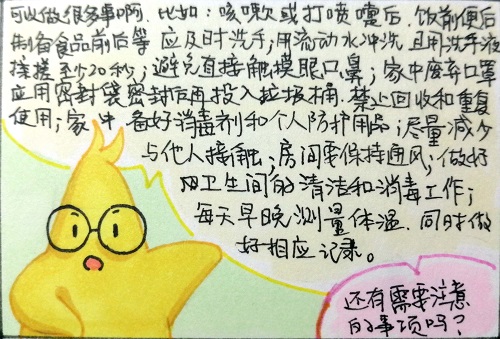 可以做很多事啊. 比如: 咳嗽或打喷嚏后, 饭前便后
制备食品前后等 应及时洗手; 用流动水冲洗 且用洗手液
揉搓至少20秒; 避免直接触摸眼口鼻; 家中废弃口罩
应用密封袋密封后再投入垃圾桶. 禁止回收和重复
使用; 家中备好消毒剂和个人防护用品; 尽量减少
与他人接触; 房间要保持通风; 做好
卫生间的清洁和消毒工作;
每天早晚测量体温. 同时做
好相应记录。
还有需要注意
的事项吗?